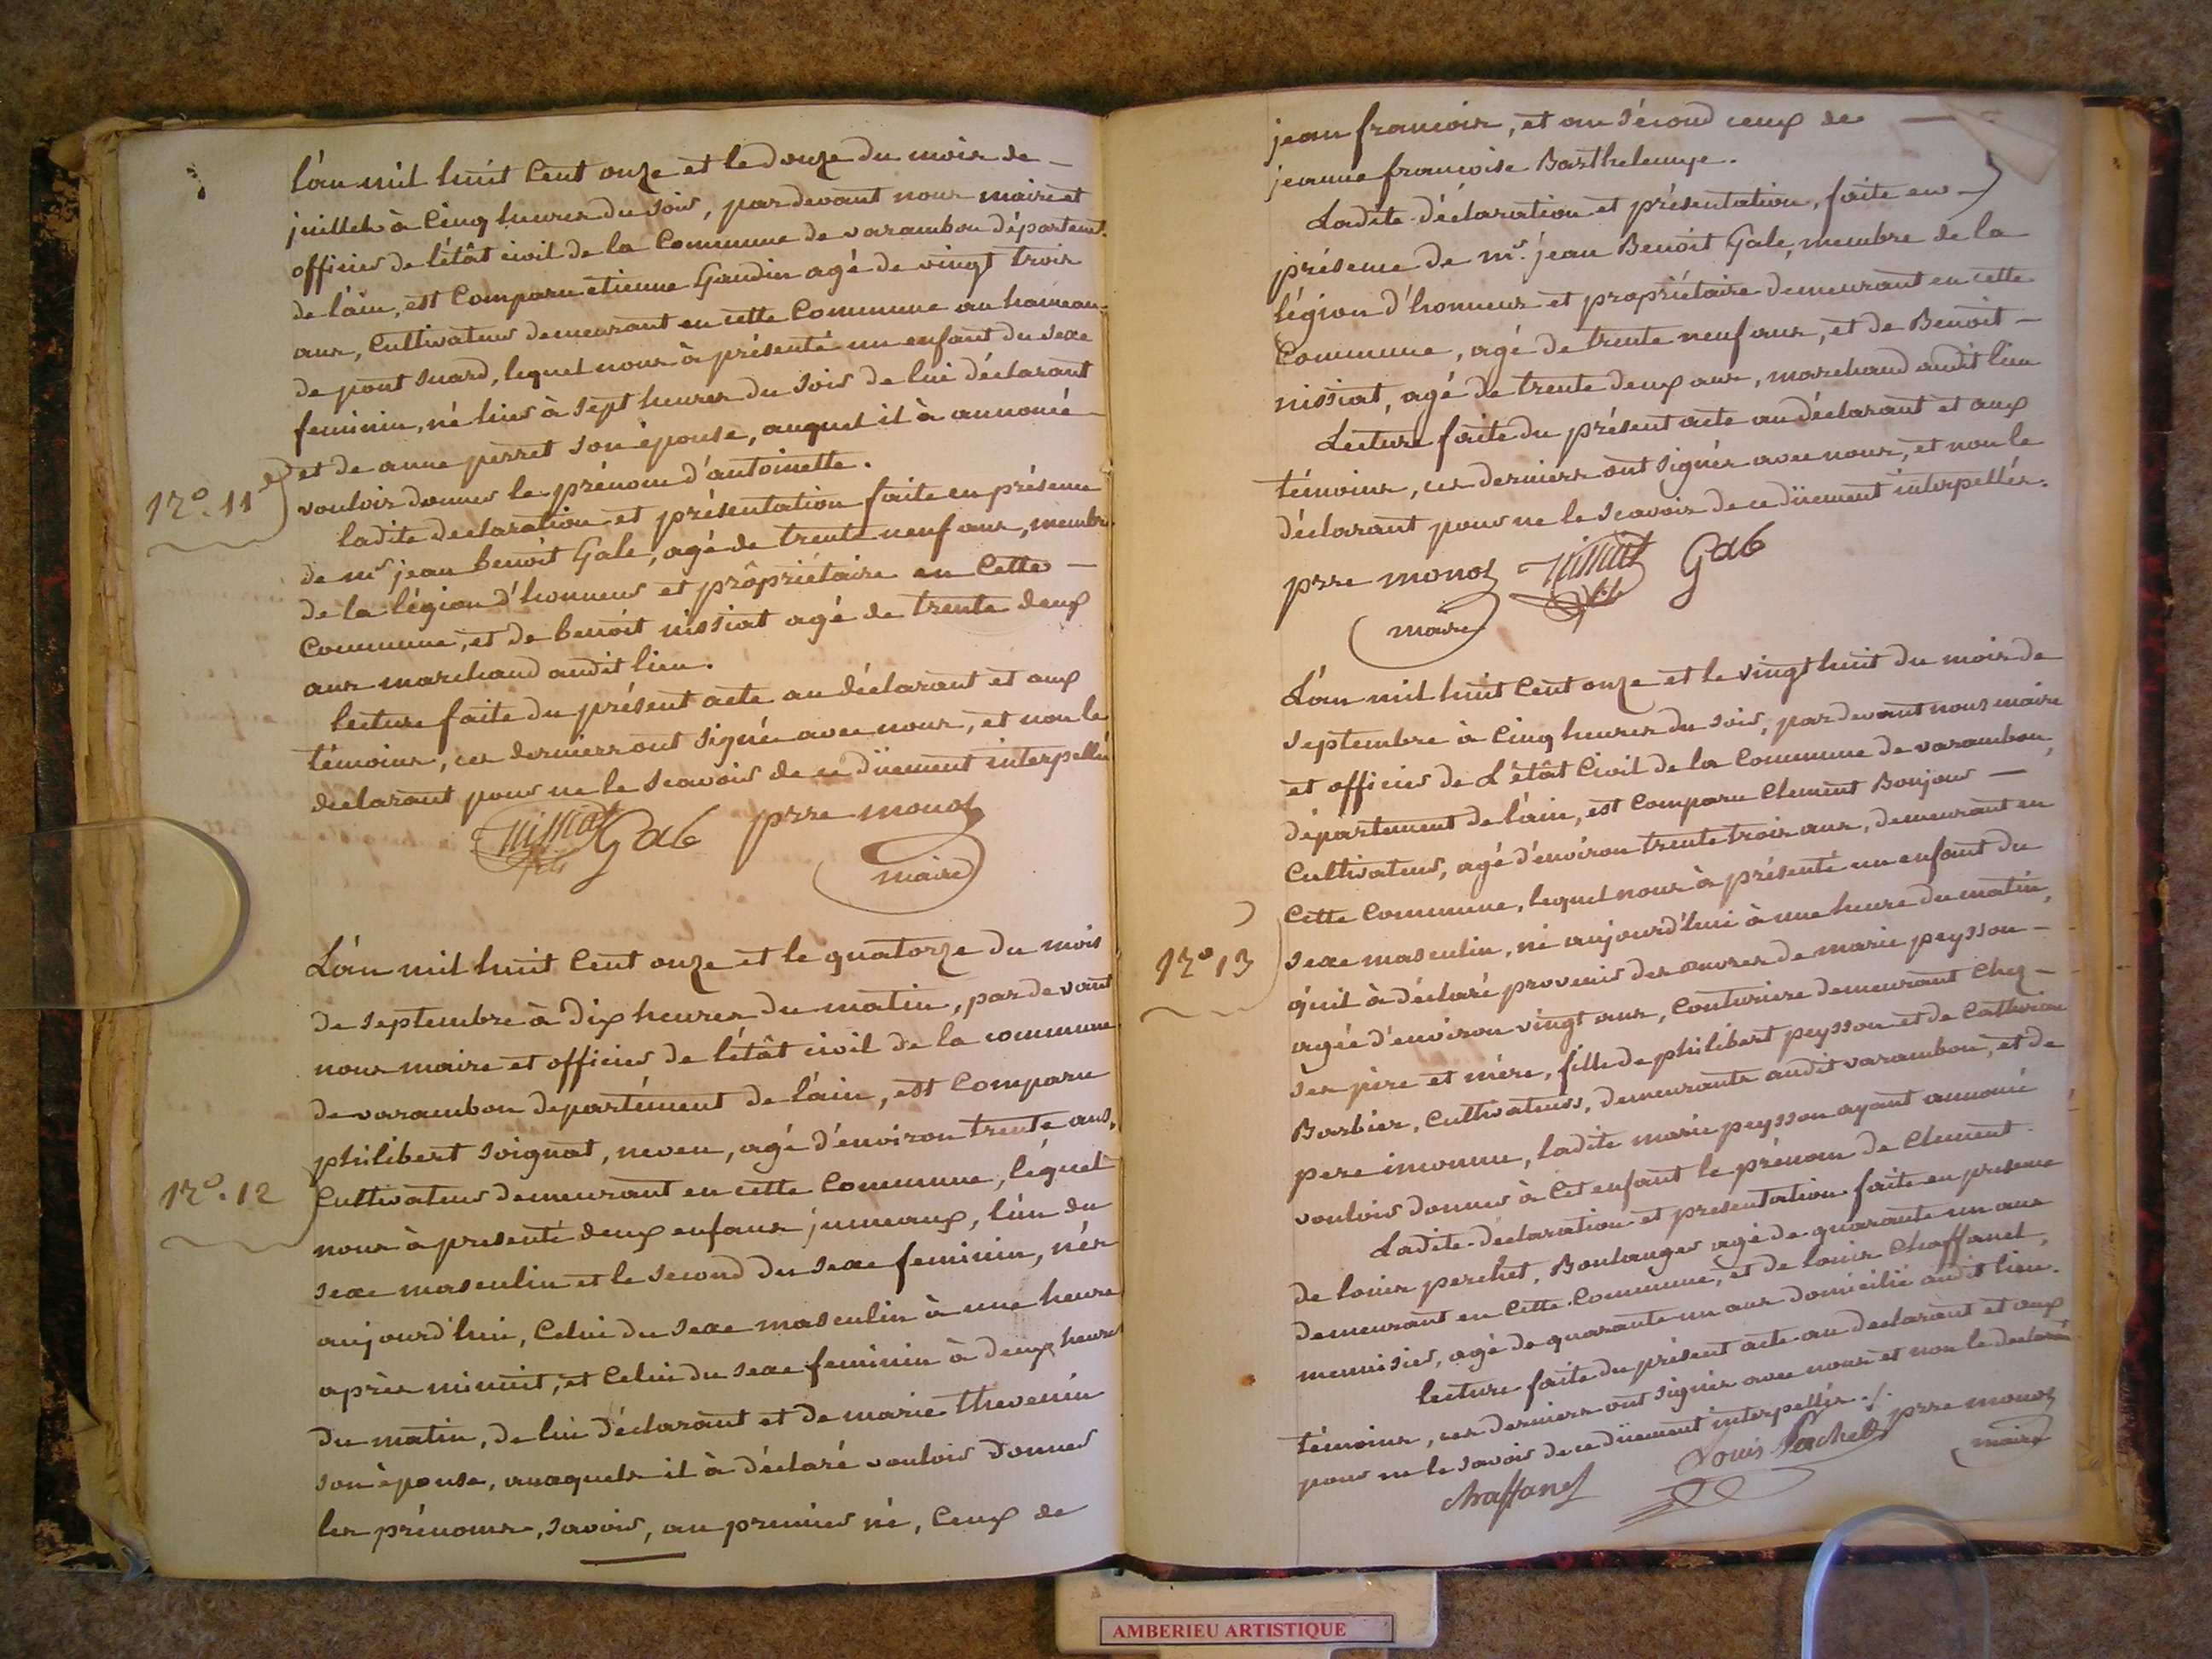 l'an mil huit Cent onze et le douze du mois de –
juillet à Cinq heures du soir, pardevant nous maire et
officier de l'étât civil de la Commune de varambon départemt.
de l'ain, est Comparu etienne Gaudin agé de vingt trois
ans, Cultivateur demeurant en cette Commune au hameau
de pont suard, lequel nous à présenté un enfant du sexe
feminin, né hier à sept heures du soir de lui déclarant
et de anne perret son épouse, auquel il à annoncé
N.º 11
vouloir donner le prénom d'antoinette.
ladite declaration et présentation faite en présence
de mr jean benoit Gale, agé de trente neuf ans, membre
de la légion d'honneur et propriétaire en Cette –
Commune, et de benoit nissiat agé de trente deux
ans marchand audit lieu.
lecture faite du présent acte au déclarant et aux
témoins, ces derniers ont signé avec nous, et non le
declarant pour ne le scavoir de ce düement interpellé
nissiat fils Gale prre monoz
maire
L'an mil huit Cent onze et le quatorze du mois
de septembre à dix heures du matin, par devant
nous maire et officier de l'étât civil de la commune
de varambon departément de l'ain, est Comparu
philibert soignat, neveu, agé d'environ trente ans,
N.º 12
Cultivateur demeurant en cette Commune, léquel
nous à presenté deux enfans jumeaux, l'un du
sexe masculin et le second du sexe feminin, nés
aujourd'hui, Celui du sexe masculin à une heure
après minuit, et Celui du sexe feminin à deux heures
du matin, de lui déclarant et de marie thevenin
son épouse, auxquels il à déclaré vouloir donner
les prénoms, savoir, au premier né, Ceux de
jean francois, et au sécond ceux de —
jeanne francoise Barthelemye.
Ladite déclaration et présentation, faite en –
présence de mr. jean Benoit Gale, membre de la
légion d'honneur et propriétaire demeurant en cette
Commune, agé de trente neuf ans, et de Benoit –
nissiat, agé de trente deux ans, marchand audit lieu
Lecture faite du présent acte au déclarant et aux
témoins, ces derniers ont signés avec nous, et non le
déclarant pour ne le scavoir de ce düement interpellés.
prre monoz nissiat fils Gale
maire
L'an mil huit Cent onze et le vingt huit du mois de
septembre à Cinq heures du soir, par devant nous maire
et officier de L'étât Civil de la Commune de varambon,
département de l'ain, est Comparu Clement Bonjour —
Cultivateur, agé d'environ trente trois ans, demeurant en
Cette Commune, lequel nous à présenté un enfant du
N.º 13
sexe masculin, né aujourd'hui à une heure du matin,
qu'il à déclaré provenir des œuvres de marie peysson –
agée d'environ vingt ans, Couturiere demeurant Chez –
ses père et mére, fille de philibert peysson et de Catherine
Barbier, Cultivateurs, demeurants audit varambon, et de
pere inconnu, ladite marie peysson ayant annoncé
vouloir donner à Cet enfant le prénom de Clement.
Ladite déclaration et presentation faite en presence
de louis perchet, Boulanger agé de quarante un ans
demeurant en Cette Commune, et de louis Chaffanel,
menuisier, agé de quarante un ans domicilié audit lieu.
lecture faite du présent acte au declarant et aux
témoins, ces derniers ont signés avec nous et non le declarant
pour ne le savoir de ce düement interpellés ./.
chaffanel Louis Perchet prre monoz
maire
AMBERIEU ARTISTIQUE